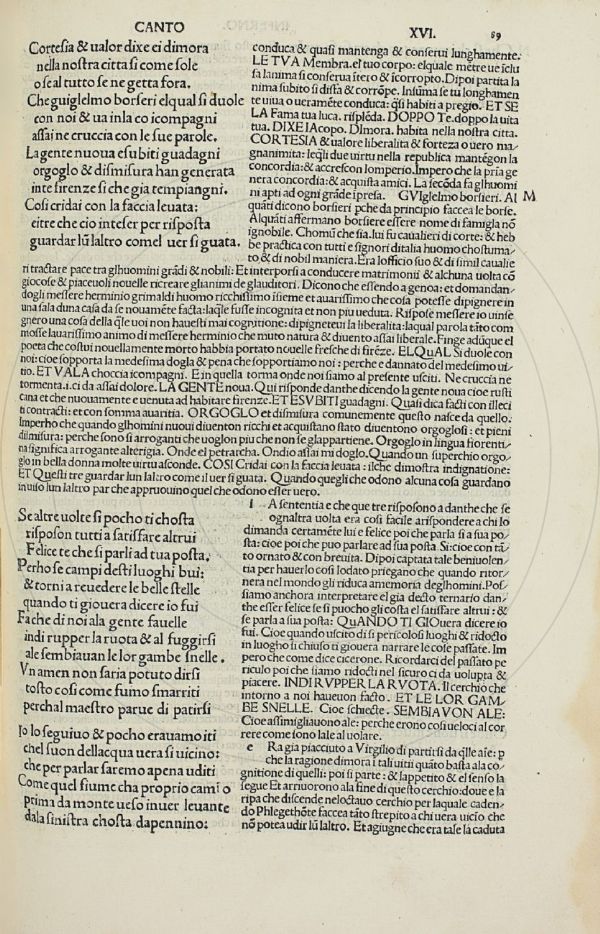 CANTO
XVI.
89
Cortesia & ualor dixe ei dimora
nella nostra citta si come sole
o se al tutto se ne getta fora.
Che guiglelmo borsieri elqual si duole
con noi & ua inla co icompagni
assai ne cruccia con le sue parole.
La gente nuoua e subiti guadagni
orgoglo & dismisura han generata
inte firenze si che gia tempiangni.
Cosi cridai con la faccia leuata:
eitre che cio inteser per risposta
guardar lun laltro comel uer si guata.
conduca & quasi mantenga & conserui lunghamente.
LE TVA Membra. el tuo corpo: elquale mẽtre ue ĩclu
sa lanima si conserua ĩtero & ĩcorropto. Dipoi partita la
nima subito si disfa & corrõpe. Insũma se tu longhamen
te uiua o ueramẽte conduca: q̃si habiti a pregio. ET SE
LA Fama tua luca. risplẽda. DOPPO Te. doppo la uita
tua. DIXE IAcopo. DImora. habita nella nostra citta.
CORTESIA & ualore liberalita & forteza o uero ma-
gnanimita: leq̃li due uirtu nella republica mantẽgon la
concordia: & accrescon lomperio. Impero che la pria ge
nera concordia: & acquista amici. La secõda fa glhuomi
ni apti ad ogni grãde ĩpresa. GVIglelmo borsieri. Al
M
quãti dicono borsieri pche da principio faccea le borse.
Alquãti affermano borsiere essere nome di famigla nõ
ignobile. Chomũ che sia. lui fu caualieri di corte: & heb
be practica con tutti e signori ditalia huomo chostuma-
to & di nobil maniera. Era lofficio suo & di simil caualie
ri tractare pace tra glhuomini grãdi & nobili: Et interporsi a conducere matrimonii & alchuna uolta cõ
giocose & piaceuoli nouelle ricreare glianimi de glauditori. Dicono che essendo a genoa: et domandan-
dogli messere herminio grimaldi huomo ricchissimo ĩsieme et auarissimo che cosa potesse dipignere in
una sala duna casa da se nouamẽte facta: laq̃le fusse incognita et non piu ueduta. Rispose messere io uinse
gnero una cosa della q̃le uoi non hauesti mai cognitione: dipigneteui la liberalita: laqual parola tãto com
mosse lauarissimo animo di messere herminio che muto natura & diuento assai liberale. Finge adũque el
poeta che costui nouellamente morto habbia portato nouelle fresche di firẽze. ELQuAL Si duole con
noi: cioe sopporta la medesima dogla & pena che sopportiamo noi: perche e dannato del medesimo ui-
tio. ET VALA choccia icompagni. E in quella torma onde noi siamo al presente usciti. Ne cruccia ne
tormenta. i. ci da assai dolore. LA GENTE noua. Qui risponde danthe dicendo la gente noua cioe rusti
cana et che nuouamente e uenuta ad habitare firenze. ET ESVBITI guadagni. Quasi dica facti con illeci
ti contracti: et con somma auaritia. ORGOGLO et dismisura comunemente questo nasce da quello.
Imperho che quando glhomini nuoui diuenton ricchi et acquistano stato diuentono orgoglosi: et pieni
dilmisura: perche sono si arroganti che uoglon piu che non se glappartiene. Orgoglo in lingua fiorenti-
na significa arrogante alterigia. Onde el petrarcha. Ondio assai mi doglo. Quando un superchio orgo-
glo in bella donna molte uirtu asconde. COSI Cridai con la faccia leuata: ilche dimostra indignatione:
ET Questi tre guardar lun laltro come il uer si guata. Quando quegli che odono alcuna cosa guardano
in uiso lun laltro par che appruouino quel che odono esser uero.
Se altre uolte si pocho ti chosta
risposon tutti a satisfare altrui
Felice te che si parli ad tua posta.
Perho se campi desti luoghi bui:
& torni a reuedere le belle stelle
quando ti giouera dicere io fui
Fa che di noi ala gente fauelle
indi rupper la ruota & al fuggirsi
ale sembiauan le lor gambe snelle.
Vn amen non saria potuto dirsi
tosto cosi come fumo smarriti
perchal maestro parue di partirsi
Io lo seguiuo & pocho erauamo iti
chel suon dellacqua uera si uicino:
che per parlar saremo apena uditi
Come quel fiume cha proprio cam̃o
prima da monte ueso inuer leuante
dala sinistra chosta dapennino:
l A sententia e che que tre risposono a danthe che se
ognaltra uolta era cosi facile arispondere a chi lo
dimanda certamẽte lui e felice poi che parla si a sua po
sta: cioe poi che puo parlare ad sua posta Si: cioe con tã-
to ornato & con breuita. Dipoi captata tale beniuolen-
tia per hauerlo cosi lodato priegano che quando ritor-
nera nel mondo gli riduca amemoria deglhomini. Pos-
siamo anchora interpretare el gia decto ternario dan-
the esser felice se si puocho gli costa el satisfare altrui: &
se parla a sua posta: QuANDO TI GIOuera dicere io
fui. Cioe quando uscito di si pericolosi luoghi & ridocto
in luogho si chiuso ti giouera narrare le cose passate. Im
pero che come dice cicerone. Ricordarci del passato pe
riculo poi che siamo ridocti nel sicuro ci da uolupta &
piacere. INDI RVPPER LA RVOTA. Il cerchio che
intorno a noi haueuon facto. ET LE LOR GAM-
BE SNELLE. Cioe schiecte. SEMBIAVON ALE:
Cioe assimigliauono ale: perche erono cosi ueloci al cor
rere come sono lale al uolare.
e Ra gia piacciuto a Virgilio di partirsi da q̃lle aĩe: p
che la ragione dimora i tali uitii quãto basta ala co-
gnitione di quelli: poi si parte: & lappetito & el senso la
segue Et arriuorono ala fine di questo cerchio: doue e la
ripa che discende neloctauo cerchio per laquale caden-
do Phlegethõte faccea tãto strepito a chi uera uicĩo che
nõ potea udir lũ laltro. Et agiugne che era tale la caduta